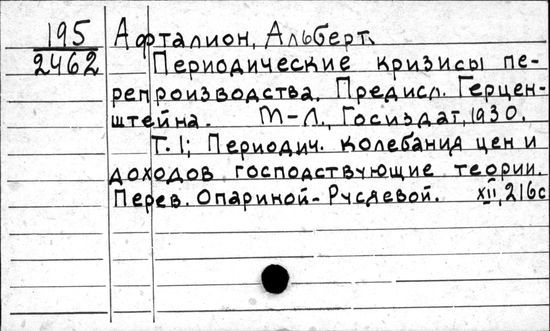 195
2462
Афталион, Альберт.
Периодические кризисы пе-
репроизводства. Предисл. Герцен-
штейна. М-Л., Госиздат, 1930.
Т. I; Периодич. колебания цен и
доходов господствующие теории.
Перев. Опариной-Русяевой. XII, 216с